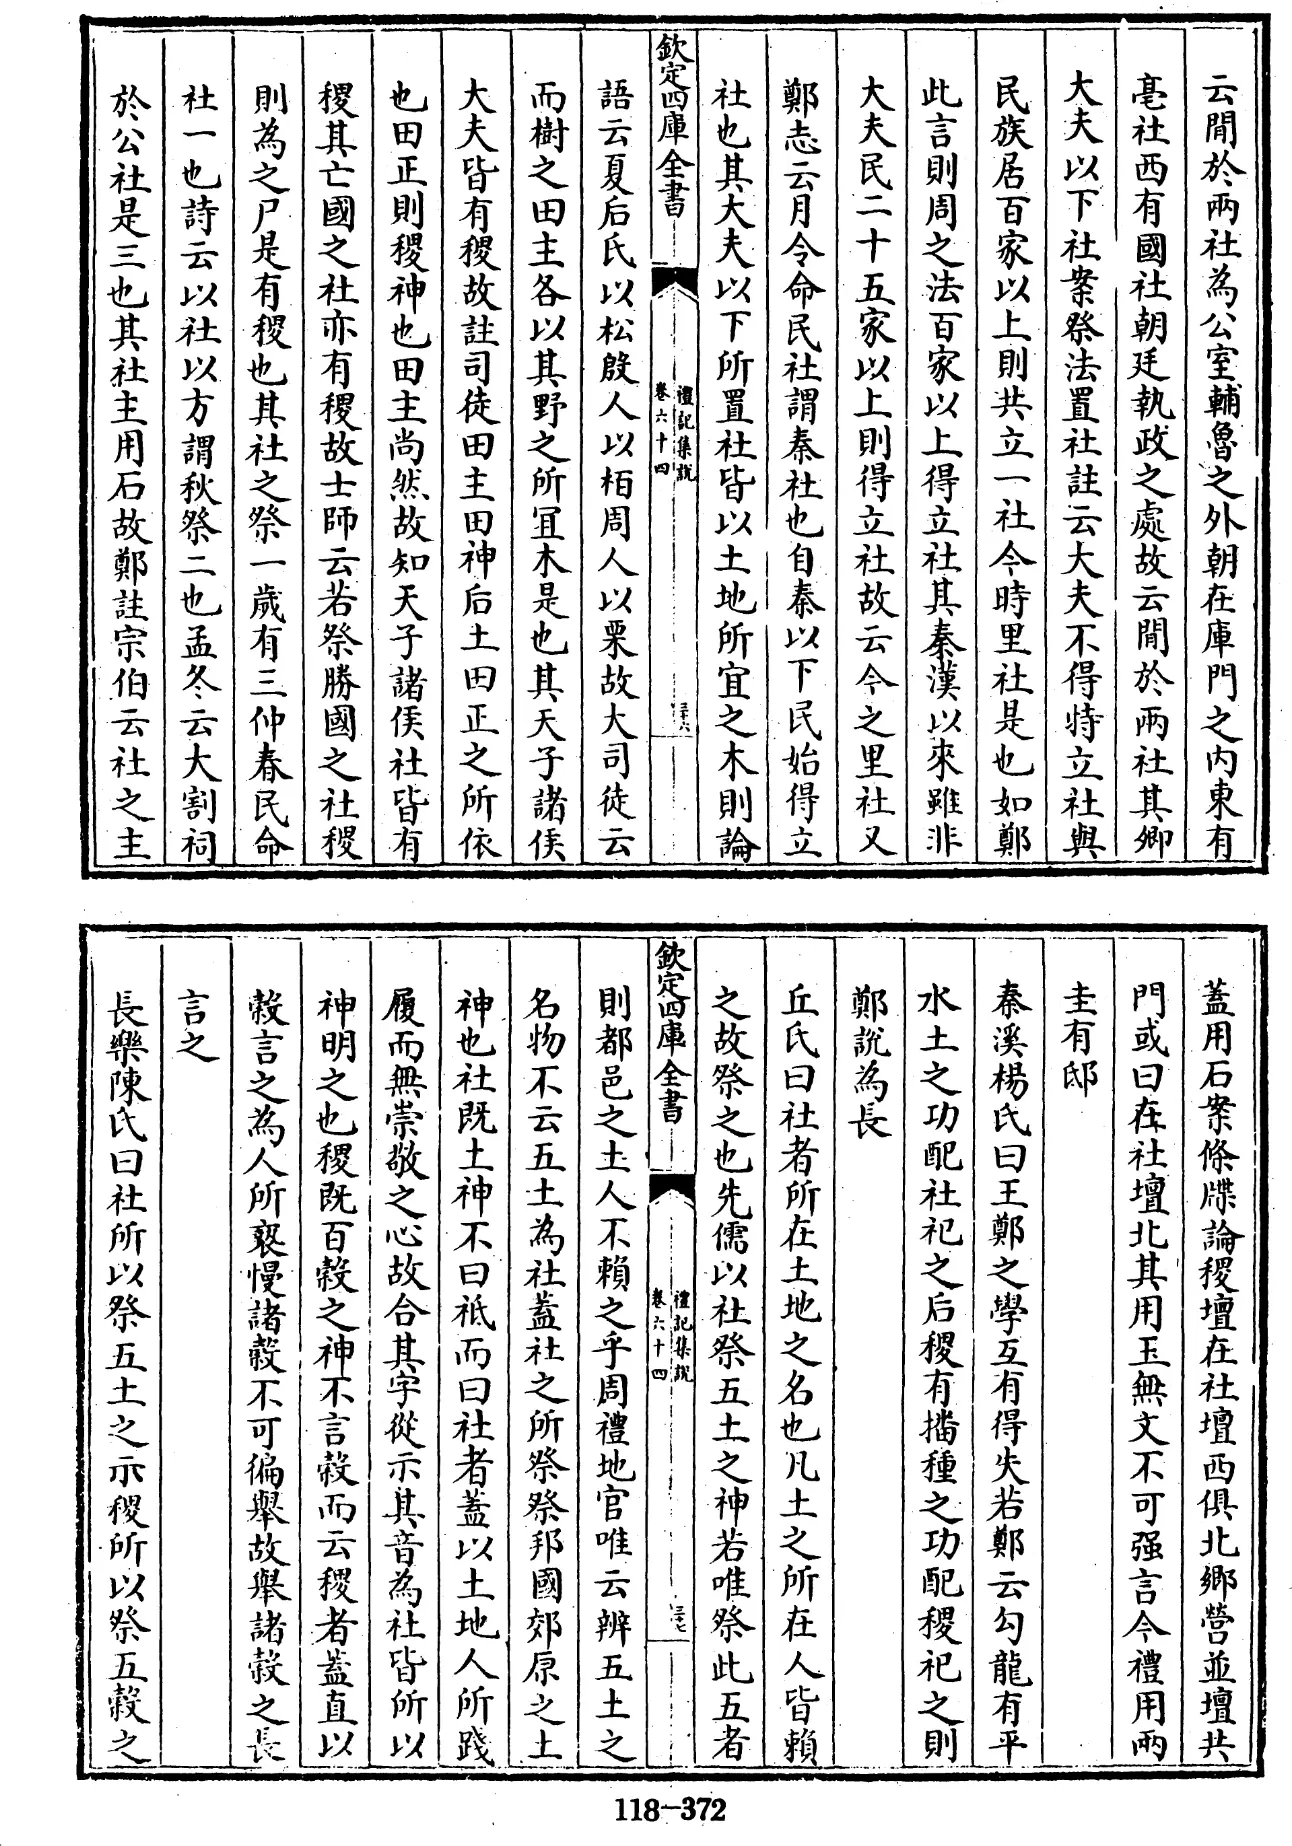 云間於兩社為公室輔魯之外朝在庫門之内東有
亳社西有國社朝廷執政之處故云間於兩社其卿
大夫以下社案祭法置社註云大夫不得特立社與
民族居百家以上則共立一社今時里社是也如鄭
此言則周之法百家以上得立社其秦漢以來雖非
大夫民二十五家以上則得立社故云今之里社又
鄭志云月令命民社謂秦社也自秦以下民始得立
社也其大夫以下所置社皆以土地所宜之木則論
欽定四庫全書
禮記集說
卷六十四
三十六
語云夏后氏以松殷人以栢周人以栗故大司徒云
而樹之田主各以其野之所宜木是也其天子諸侯
大夫皆有稷故註司徒田主田神后土田正之所依
也田正則稷神也田主尚然故知天子諸侯社皆有
稷其亡國之社亦有稷故士師云若祭勝國之社稷
則為之尸是有稷也其社之祭一歲有三仲春民命
社一也詩云以社以方謂秋祭二也孟冬云大割祠
於公社是三也其社主用石故鄭註宗伯云社之主
蓋用石案條牒論稷壇在社壇西俱北鄉營並壇共
門或曰在社壇北其用玉無文不可强言今禮用兩
圭有邸
秦溪楊氏曰王鄭之學互有得失若鄭云勾龍有平
水土之功配社祀之后稷有播種之功配稷祀之則
鄭說為長
丘氏曰社者所在土地之名也凡土之所在人皆賴
之故祭之也先儒以社祭五土之神若唯祭此五者
欽定四庫全書
禮記集說
卷六十四
三十七
則都邑之土人不賴之乎周禮地官唯云辨五土之
名物不云五土為社蓋社之所祭祭邦國郊原之土
神也社既土神不曰祇而曰社者蓋以土地人所踐
履而無崇敬之心故合其字從示其音為社皆所以
神明之也稷既百穀之神不言穀而云稷者蓋直以
穀言之為人所褻慢諸穀不可徧舉故舉諸穀之長
言之
長樂陳氏曰社所以祭五土之示稷所以祭五穀之
118-372